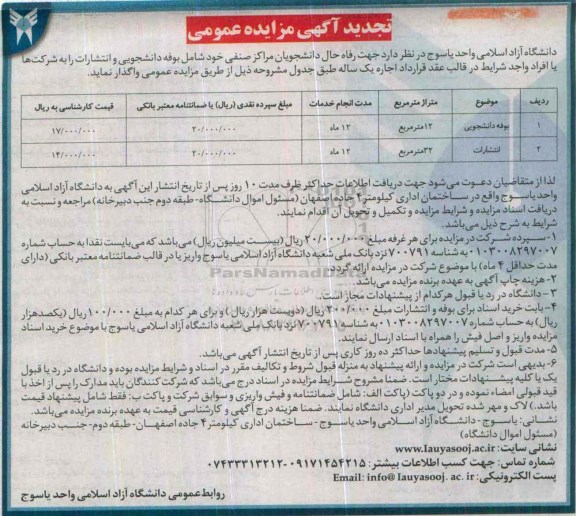 تجدید آگهی مزایده عمومی
دانشگاه آزاد اسلامی واحد یاسوج در نظر دارد جهت رفاه حال دانشجویان مراکز صنفی خود شامل بوفه دانشجویی و انتشارات را به شرکت‌ها
یا افراد واجد شرایط در قالب عقد قرارداد اجاره یک ساله طبق جدول مشروحه ذیل از طریق مزایده عمومی واگذار نماید.
ردیف موضوع متراژ مترمربع مدت انجام خدمات مبلغ سپرده نقدی (ریال) یا ضمانتنامه معتبر بانکی قیمت کارشناسی به ریال
۱ بوفه دانشجویی ۱۲مترمربع ۱۲ ماه ۲۰/۰۰۰/۰۰۰ ۱۷/۰۰۰/۰۰۰
۲ انتشارات ۳۲مترمربع ۱۲ ماه ۲۰/۰۰۰/۰۰۰ ۱۴/۰۰۰/۰۰۰
لذا از متقاضیان دعوت می‌شود جهت دریافت اطلاعات حداکثر ظرف مدت ۱۰ روز پس از تاریخ انتشار این آگهی به دانشگاه آزاد اسلامی
واحد یاسوج واقع در ساختمان اداری کیلومتر ۴ جاده اصفهان (مسئول اموال دانشگاه- طبقه دوم جنب دبیرخانه) مراجعه و نسبت به
دریافت اسناد مزایده و شرایط مزایده و تکمیل و تحویل آن اقدام نمایند.
شرایط به شرح ذیل می‌باشد.
۱-سپرده شرکت در مزایده برای هر غرفه مبلغ ۲۰/۰۰۰/۰۰۰ ریال (بیست میلیون ریال) می‌باشد که می‌بایست نقدا به حساب شماره
۰۱۰۳۰۰۸۲۹۷۰۰۷ به شناسه ۷۰۰۷۹۱ نزد بانک ملی شعبه دانشگاه آزاد اسلامی یاسوج واریز یا در قالب ضمانتنامه معتبر بانکی (دارای
مدت حداقل ۴ ماه) با موضوع شرکت در مزایده ارائه گردد.
ParsNamadData
۲- هزینه چاپ آگهی به عهده برنده مزایده می‌باشد.
۳ - دانشگاه در رد یا قبول هرکدام از پیشنهادات مجاز است.
۴- بابت خرید اسناد برای بوفه و انتشارات مبلغ ۲۰۰/۰۰۰ ریال (دویست هزار ریال ) و برای هر کدام به مبلغ ۱۰۰/۰۰۰ ریال (یکصدهزار
ریال) به حساب شماره ۰۱۰۳۰۰۸۲۹۷۰۰۷ به شناسه ۷۰۰۷۹۱ نزد بانک ملی شعبه دانشگاه آزاد اسلامی یاسوج با موضوع خرید اسناد
مزایده واریز و اصل فیش را همراه با اسناد ارسال نمایند.
۵- مدت قبول و تسلیم پیشنهادها حداکثر ده روز کاری پس از تاریخ انتشار آگهی می‌باشد.
۶- بدیهی است شرکت در مزایده و ارائه پیشنهاد به منزله قبول شروط و تکالیف مقرر در اسناد و شرایط مزایده بوده و دانشگاه در رد یا قبول
یک یا کلیه پیشنهادات مختار است. ضمنا مشروح شرایط مزایده در اسناد درج می‌باشد که شرکت کنندگان باید مدارک را پس از اخذ با
قید قبولی امضاء نموده و در دو پاکت (پاکت الف: شامل ضمانتنامه و فیش واریزی و سوابق شرکت و پاکت ب: فقط شامل پیشنهاد قیمت
باشد.) لاک و مهر شده تحویل مدیر اداری دانشگاه نمایند. ضمنا هزینه درج آگهی و کارشناسی قیمت به عهده برنده مزایده می‌باشد.
نشانی: یاسوج - دانشگاه آزاد اسلامی واحد یاسوج - ساختمان اداری کیلومتر ۴ جاده اصفهان- طبقه دوم- جنب دبیرخانه
(مسئول اموال دانشگاه)
نشانی سایت: www.lauyasooj.ac.ir
شماره تماس: جهت کسب اطلاعات بیشتر: ۰۹۱۷۱۴۵۴۲۱۵-۰۷۴۳۳۳۱۳۲۱۲
پست الکترونیکی: Email: info@ lauyasooj. ac. ir
روابط عمومی دانشگاه آزاد اسلامی واحد یاسوج